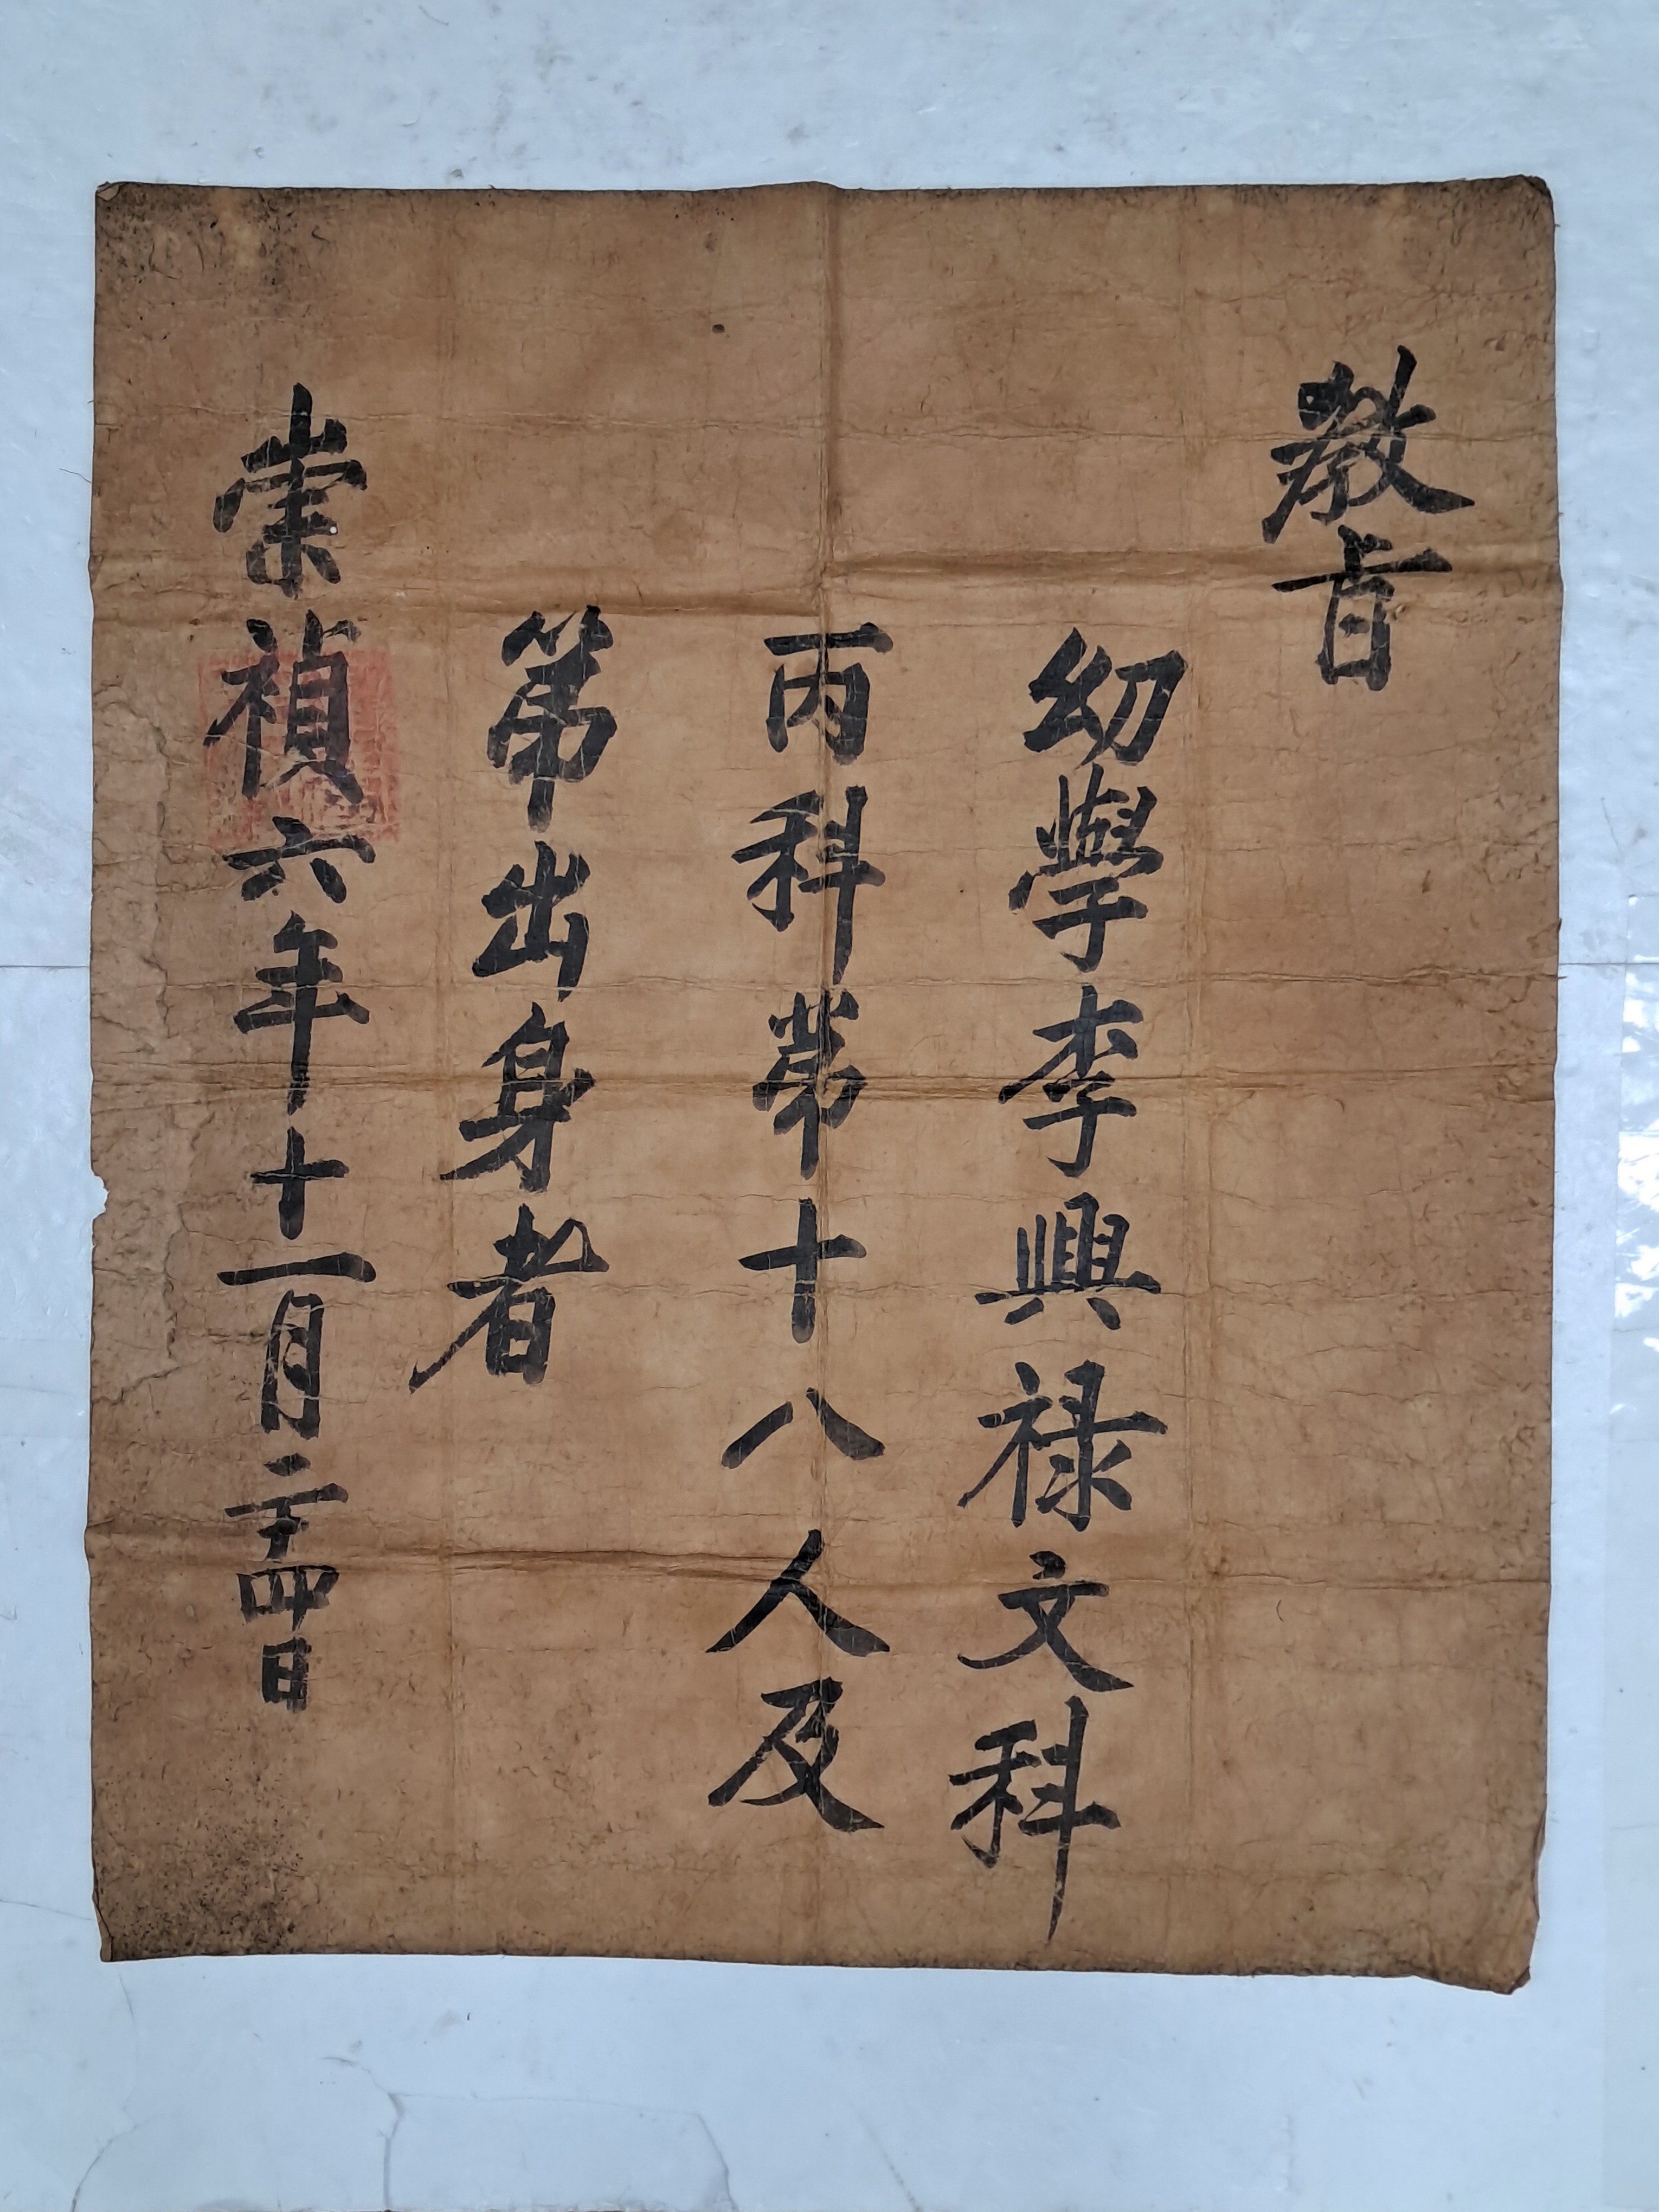 教旨
幼學李興祿文科
丙科第十八人及
第出身者
崇禎六年十一月二十四日